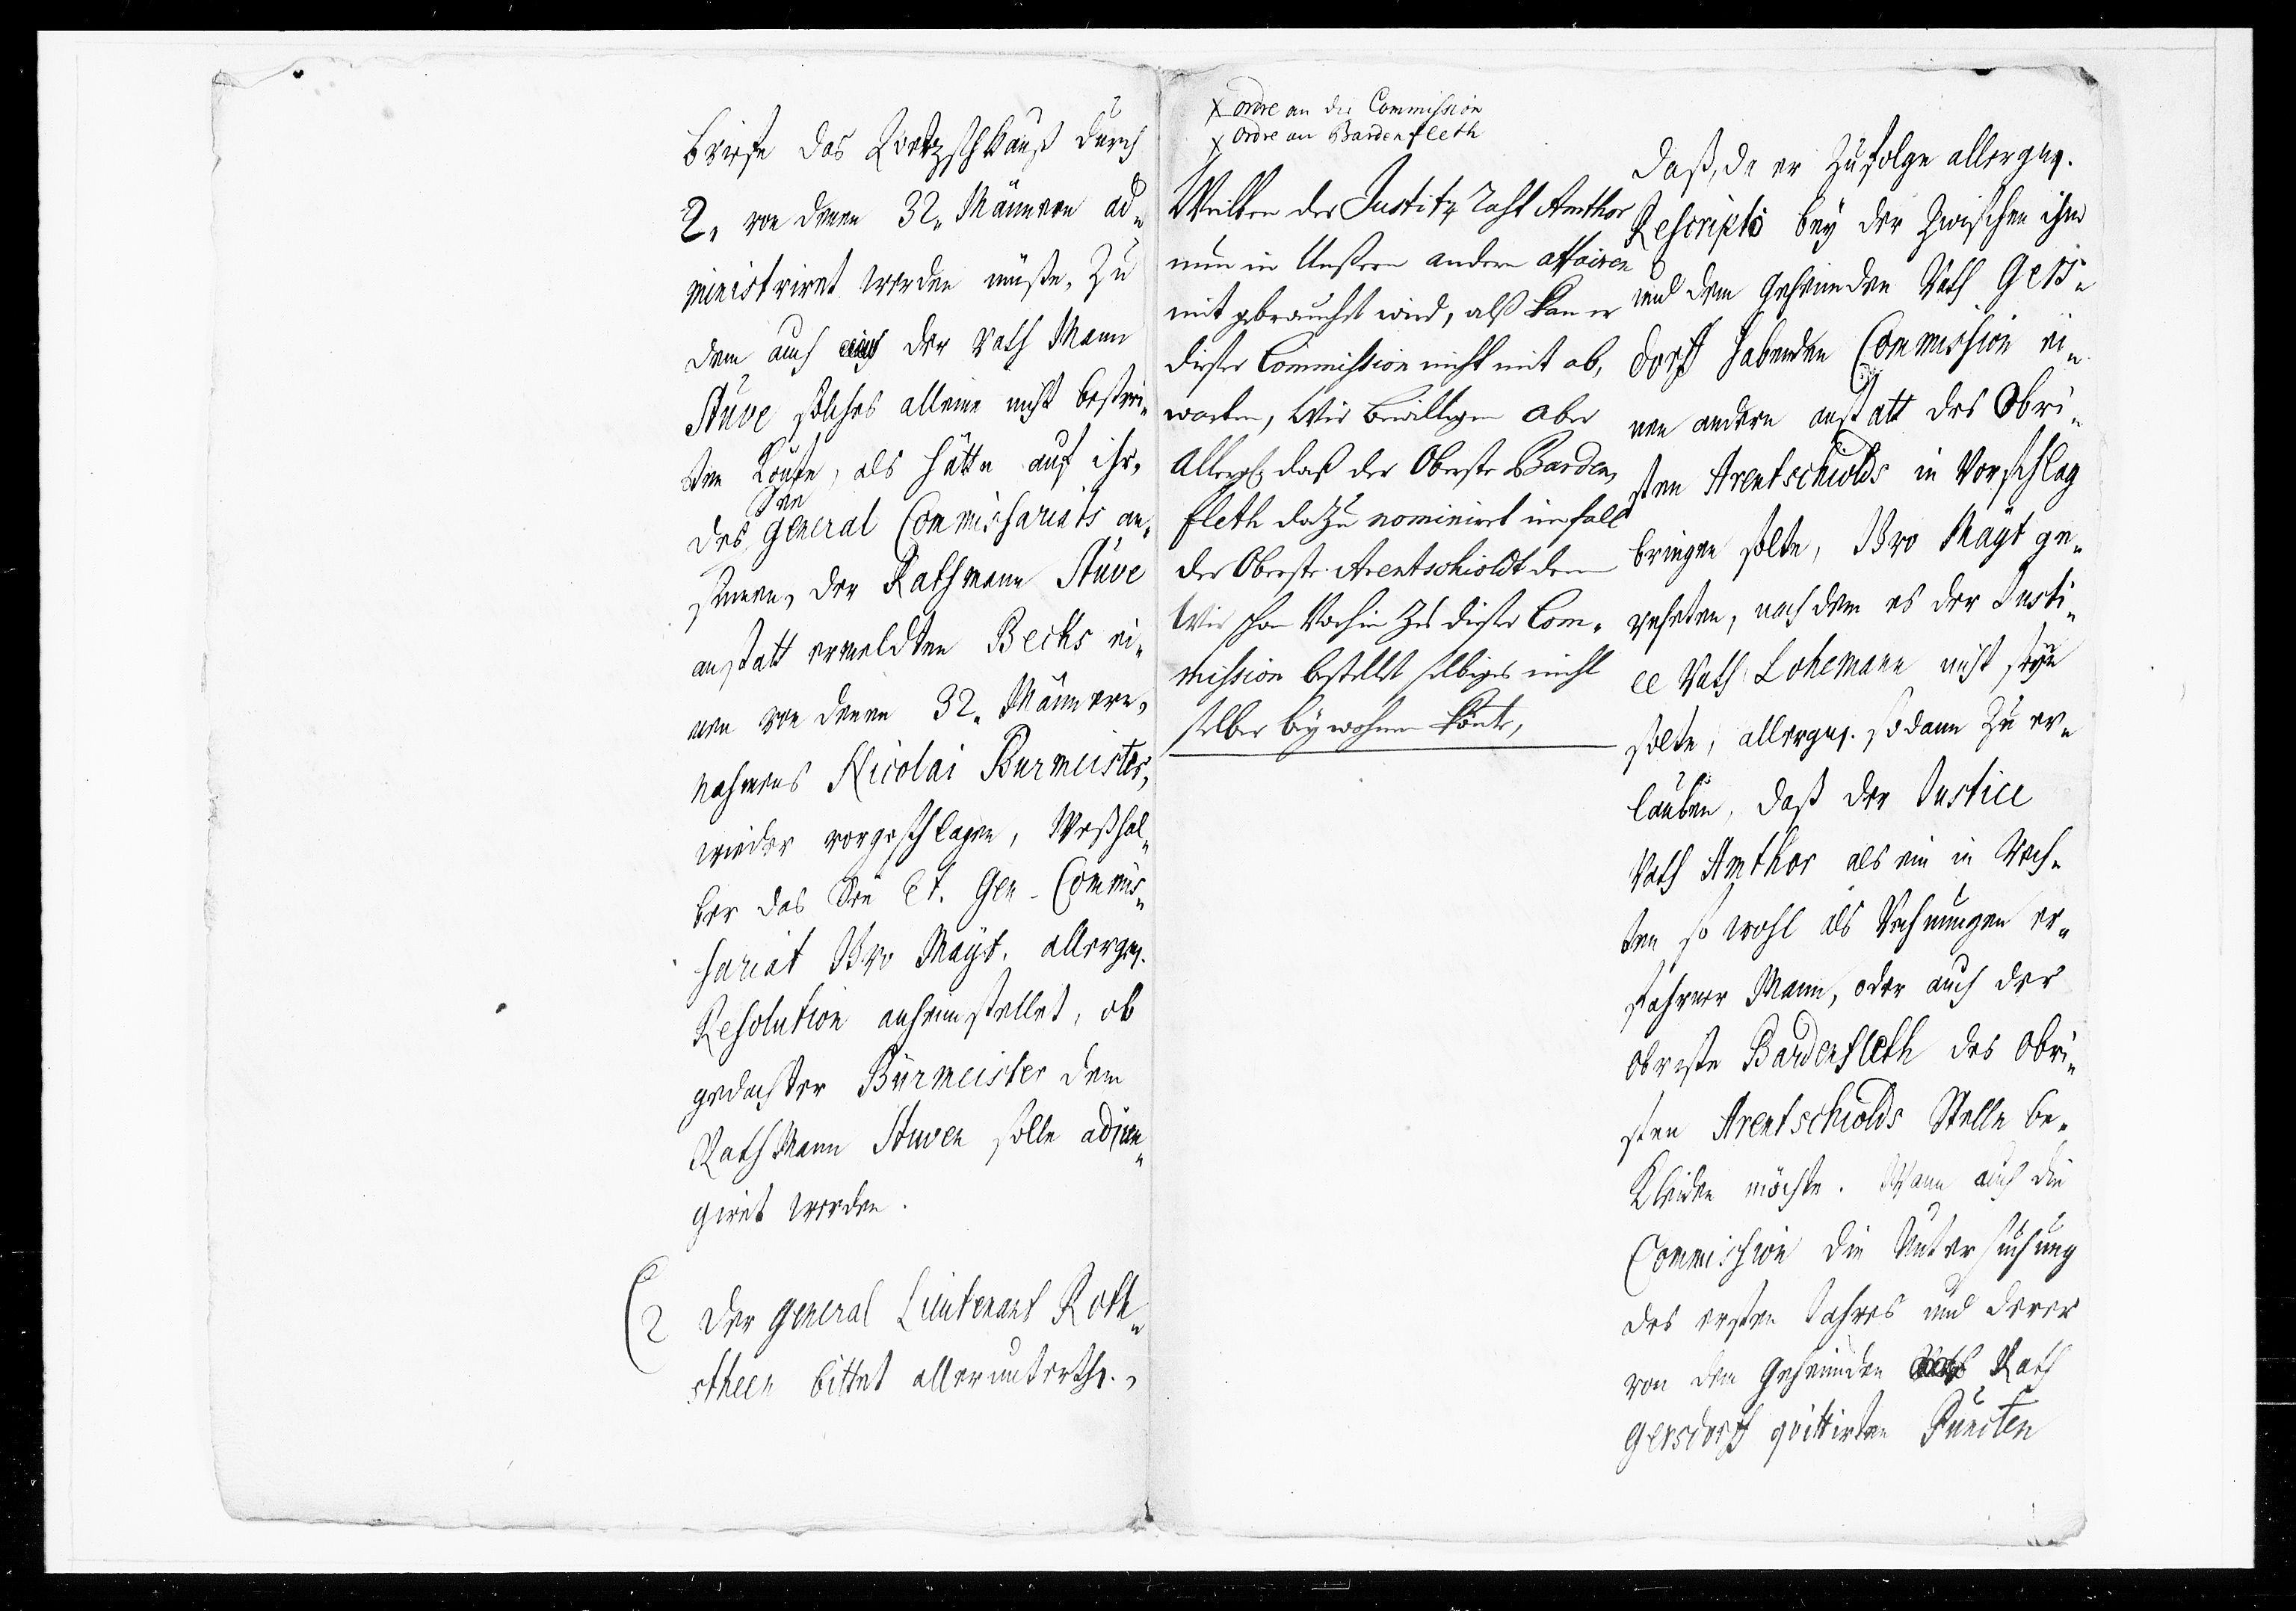 briefe das Zuchtzhauß durch
2. von denen 32. Männern ad-
ministriret werden müste, Zu
dem auch der Rath Mann
Stuve solches alleine nicht bestrei-
ten könte, als hätte auf ihr,
des See General Commissariats an-
sinnen, der Rathmann Stuve
anstatt ermeldten Becks ei-
nen von denen 32. Männern,
nahmens Nicolai Burmeister,
wieder vorgeschlagen, Weßhal-
ber das See Et. Gen-Commis-
sariat Ihro Mayt. allergn.
Resolution anheimstellet, ob
gedachter Bürmeister dem
RathMann Stuven solle adjun-
giret werden.
2 Der General Lieutenant Roth-
steen bittet allerunterth.,
x ordre an die Commission
x ordre an Bardenfleth
Weillen der Justitz Raht Amthor
nun in Unßern andern affairen
mit gebraucht wird, alß kan er
dießer Commission nicht mit ab,
warten, Wir bewilligen aber
Allergn. daß der Oberste Barden,
fleth dazu nominiret im fall
der Oberste Arentschioldt den
Wir schon Vorhin zu dießer Com-
mission bestellet selbiges nicht
selber beywohnen könte,
daß, da er Zufolge allergn.
Rescripts bey der Zwischen ihm
und dem Geheimden Rath Gers-
dorff habenden Commission ei-
nen andern anstatt des Obri-
sten Arentschiolds in Vorschlag
bringen solte, Ihro Mayt ge-
ruheten, nachdem es der Justi-
ce Rath Lohemann nicht seyn
solte, allergn. sodann Zu er-
lauben, daß der Justice
Rath Amthor als ein in Rech-
ten so wohl als Rechnungen er-
fahrner Mann, oder auch der
Obriste Bardenfleth des Obri-
sten Arentschiolds Stelle be-
kleiden möchte. Wann auch die
Commission die Untersuchung
des ersten Jahres und derer
von dem Geheimden Rath
Gersdorff quittirten Puncten